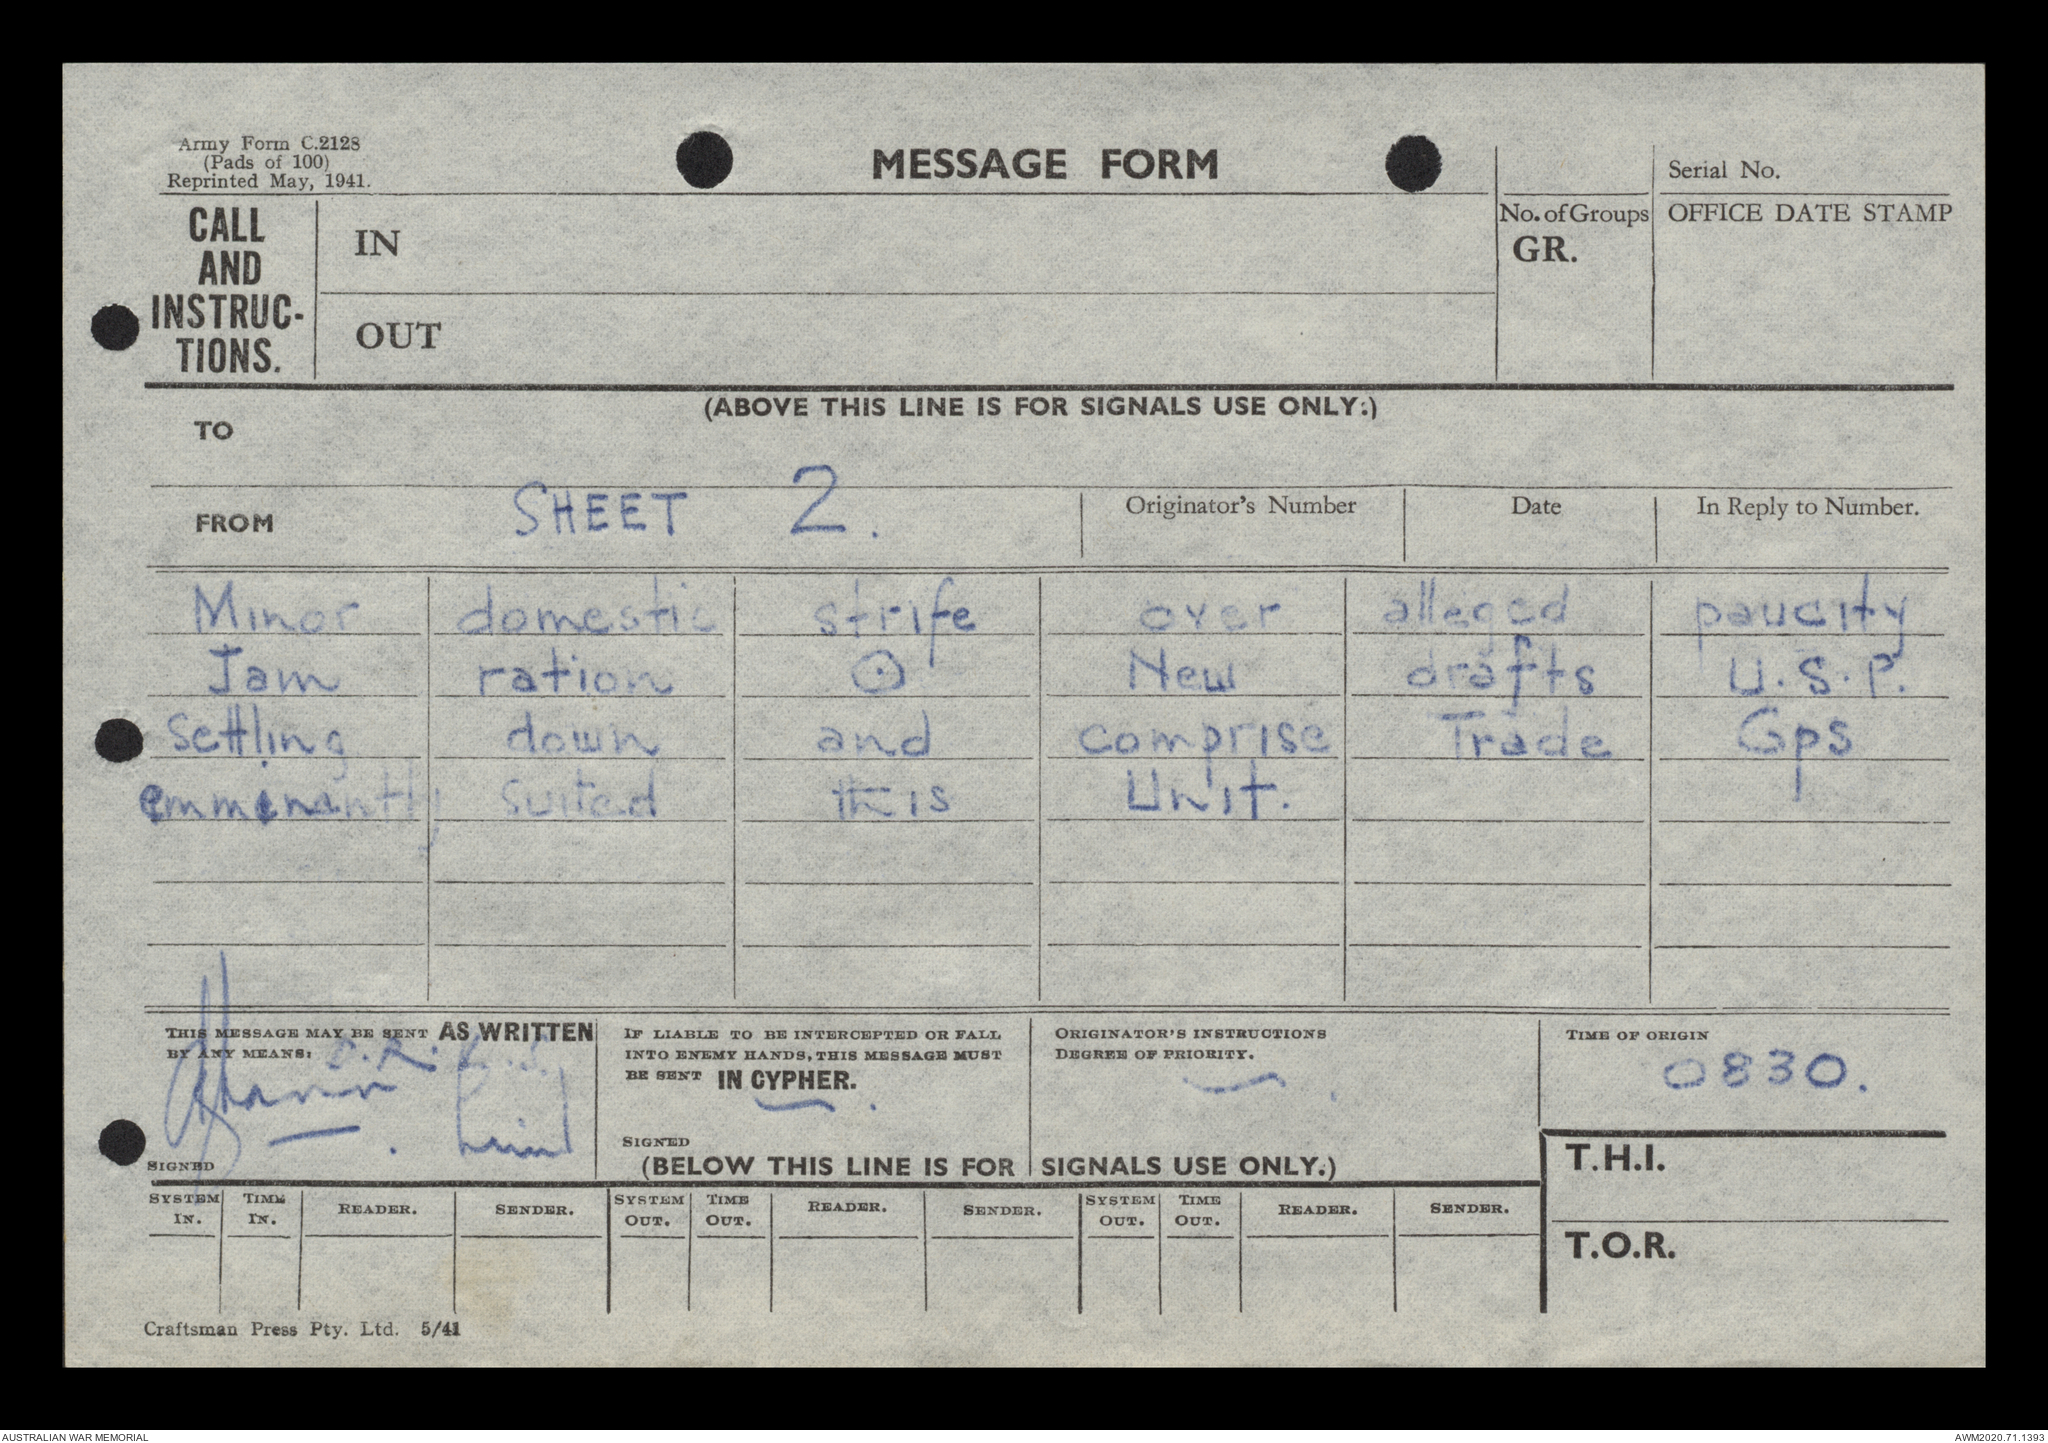 Army Form C.2128
(Pads of 100)
Reprinted May, 1941.
MESSAGE FORM
Serial No.
CALL
AND
INSTRUC-
TIONS.
IN
OUT
No. of Groups
GR.
OFFICE DATE STAMP
(ABOVE THIS LINE IS FOR SIGNALS USE ONLY.)
TO
FROM SHEET 2.
Originator's Number Date In Reply to Number.
Minor domestic strife over alleged paucity
Jam ration ⊙ New drafts U.S.P.
settling down and comprise Trade Gps
emmenantly suited this Unit.
THIS MESSAGE MAY BE SENT AS WRITTEN
BY ANY MEANS:
SIGNED
IF LIABLE TO BE INTERCEPTED OR FALL
INTO ENEMY HANDS, THIS MESSAGE MUST
BE SENT IN CYPHER.
SIGNED
ORIGINATOR'S INSTRUCTIONS
DEGREE OF PRIORITY.
TIME OF ORIGIN
0830.
(BELOW THIS LINE IS FOR SIGNALS USE ONLY.)
T.H.I.
T.O.R.
SYSTEM IN. TIME IN. READER. SENDER. SYSTEM OUT. TIME OUT. READER. SENDER. SYSTEM OUT. TIME OUT. READER. SENDER.
Craftsman Press Pty. Ltd. 5/41
AUSTRALIAN WAR MEMORIAL
AWM2020.71.1393